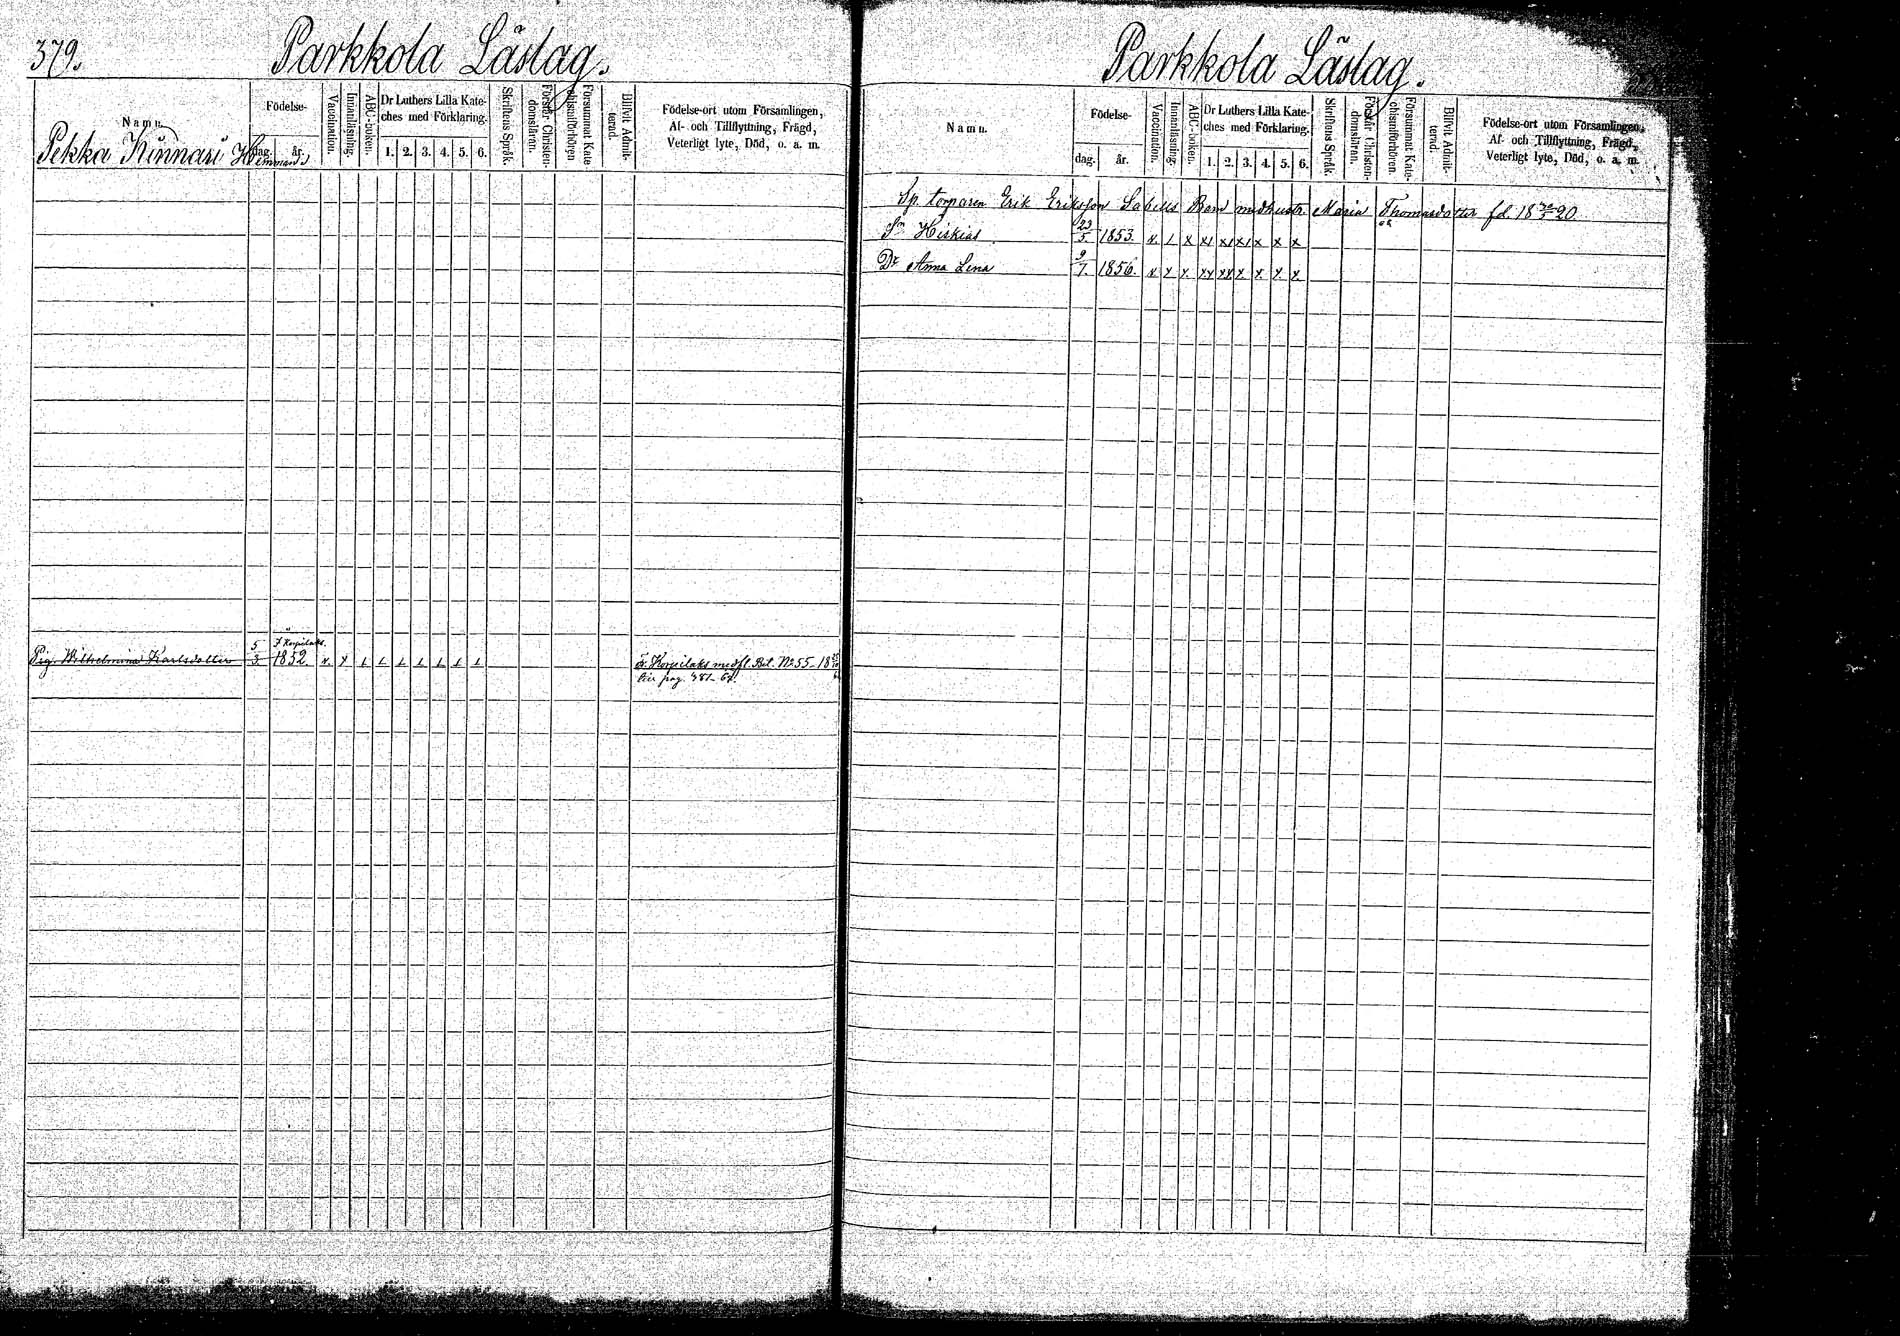 379.
Parkkola Läslag.
Namn.
Födelse-
dag. år.
Vaccination.
Innanläsning.
ABC-boken.
Dr Luthers Lilla Kate-
ches med Förklaring.
1. 2. 3. 4. 5. 6.
Skriftens Språk.
Förstår Christen-
domsläran.
Försummat Kate-
chismiförhören
Blifvit Admit-
terad.
Födelse-ort utom Församlingen,
Af- och Tillflyttning, Frägd,
Veterligt lyte, Död, o. a. m.
Pekka Kinnari Hemman.
Pig. Wilhelmina Karlsdotter 5/3. 1852.
fr. Korpilaks med fl. Bet. No 55-18
Parkkola Läslag.
Namn.
Födelse-
dag. år.
Vaccination.
Innanläsning.
ABC-boken.
Dr Luthers Lilla Kate-
ches med Förklaring.
1. 2. 3. 4. 5. 6.
Skriftens Språk.
Förstår Christen-
domsläran.
Försummat Kate-
chismiförhören.
Blifvit Admit-
terad.
Födelse-ort utom Församlingen,
Af- och Tillflyttning, Frägd,
Veterligt lyte, Död, o. a. m.
Sp. torparen Erik Eriksson Sabells Barn med hustr. Maria Thomasdotter fd. 18 20.
Sn Hiskias 23/5. 1853.
Dr Anna Lena 9/7. 1856.